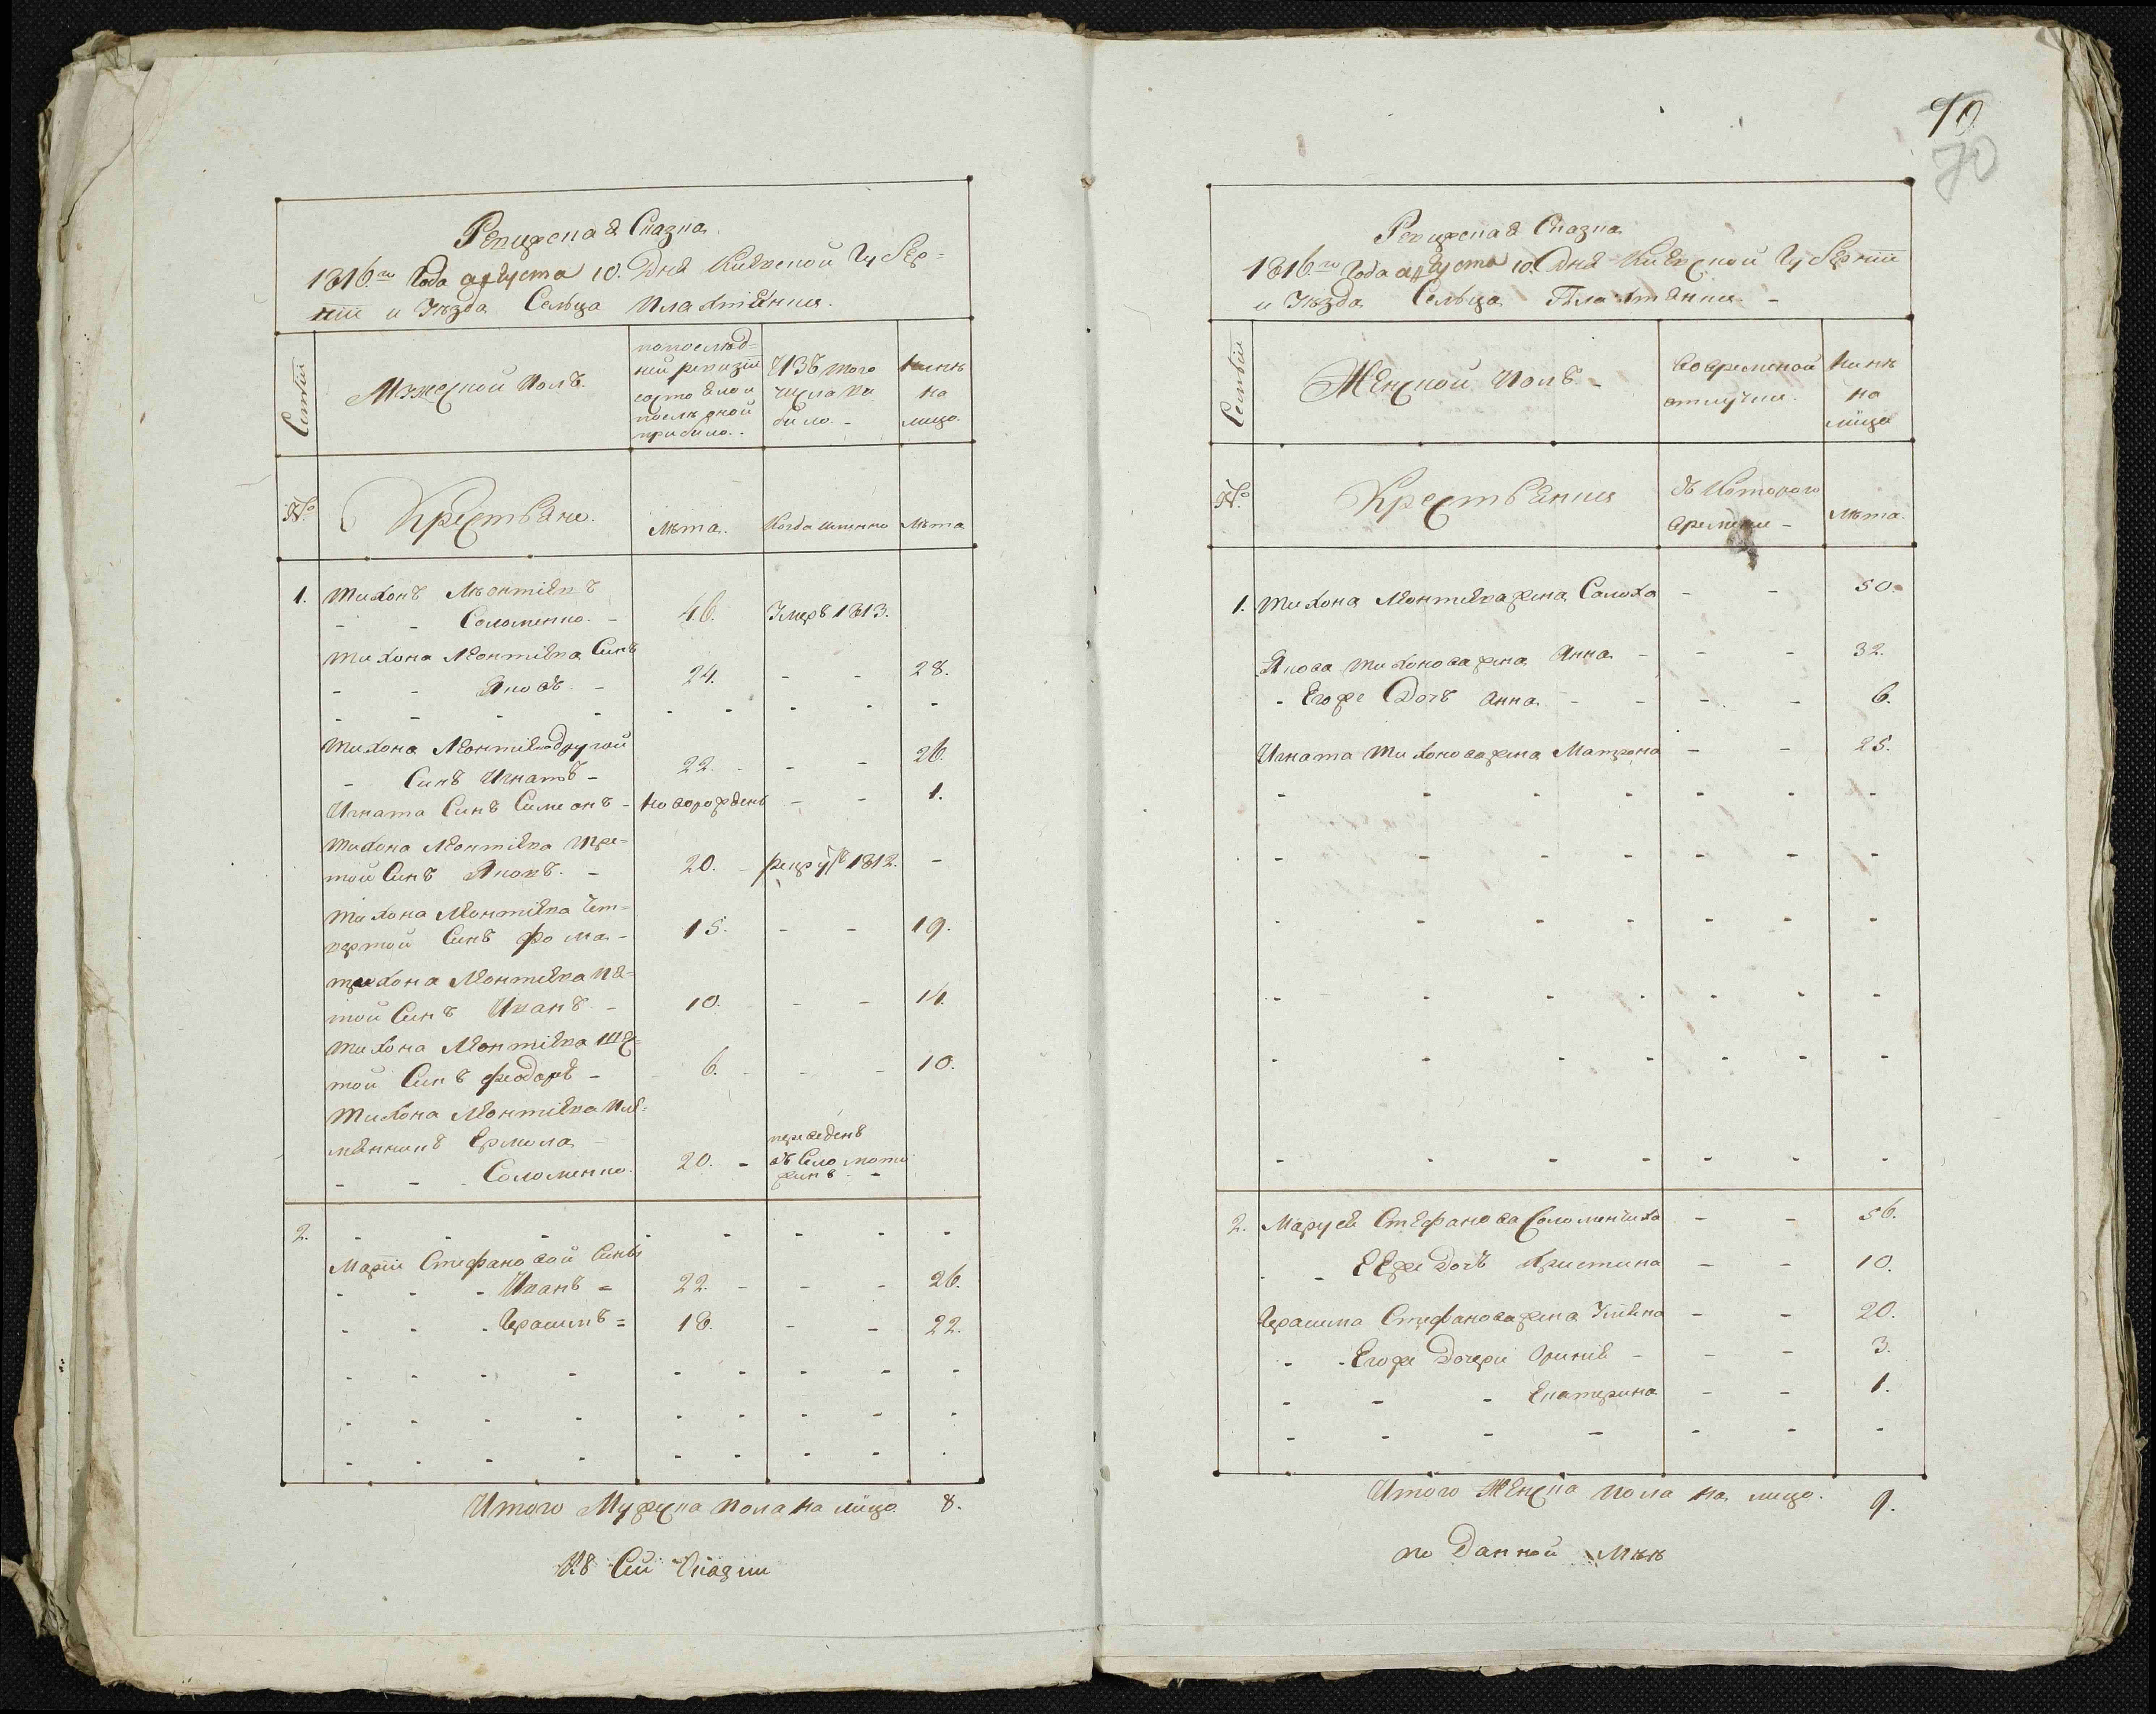 Ревизская Сказка
1816го Года августа 10. Дня Киевской Губер=
нiи и Уѣзда Сельца Плахтянки.
Семьи
Мужеской Полъ.
по послѣд=
ней ревизiи
состояло и
послѣ оной
прибыло.
Изъ того
числа вы
было. -
Нынѣ
на
лицо.
№
Крестьяне.
Лѣта.
Когда именно
Лѣта
1. Тихонъ Леонтiевъ
- - Соломенко. - 46. Умеръ 1813.
Тихона Леонтiева Синъ
- - Яковъ. - 24. - - 28.
Тихона Леонтiева другой
- Синъ Игнатъ - 22. - - 26.
Игната Синъ Симеонъ - новорожденъ - - 1.
Тихона Леонтiева Тре=
той Синъ Яковъ. - 20. - рекрутъ 1812. -
Тихона Леонтiева Чет=
вертой Синъ Фома - 15. - - 19.
Тихона Леонтiева Пя=
той Синъ Иванъ - 10. - - 14.
Тихона Леонтiева Шес=
той Синъ Феодоръ - 6. - - 10.
Тихона Леонтiева Пле=
мянникъ Ермола
- - Соломенко. 20. - переведенъ
въ Село Моти
жинъ - -
2. - - - - - - - -
Марiи Стефановой Сины
- - - Иванъ = 22. - - - 26.
- - - Герасимъ = 18. - - 22.
Итого Мужеска пола на лицо 8.
Къ Сей Сказки
70
70
Ревизская Сказка
1816.го Года августа 10. Дня Киевской Губернiи
и Уѣзда Сельца Плахтянки -
Семьи
Женской Полъ -
Во временной
отлучки.
Нынѣ
на
лицо
№.
Крестьянки
съ Которого
времени -
Лѣта.
1. Тихона Леонтiева жена Солоха - - 50.
Якова Тихонова жена Анна - - - 32.
- Его же Дочъ Анна - - - - 6.
Игната Тихонова жена Матрона - - 25.
2. Маруся Стефанова Соломенчиха - - 56.
- - Ее же Дочъ Христина - - 10.
Герасима Стефанова жена Улiяна - - 20.
- - Его же Дочери Оринiя - - - 3.
- - - Екатерина - - 1.
Итого Женска пола на лицо. 9.
по Данной Мнѣ